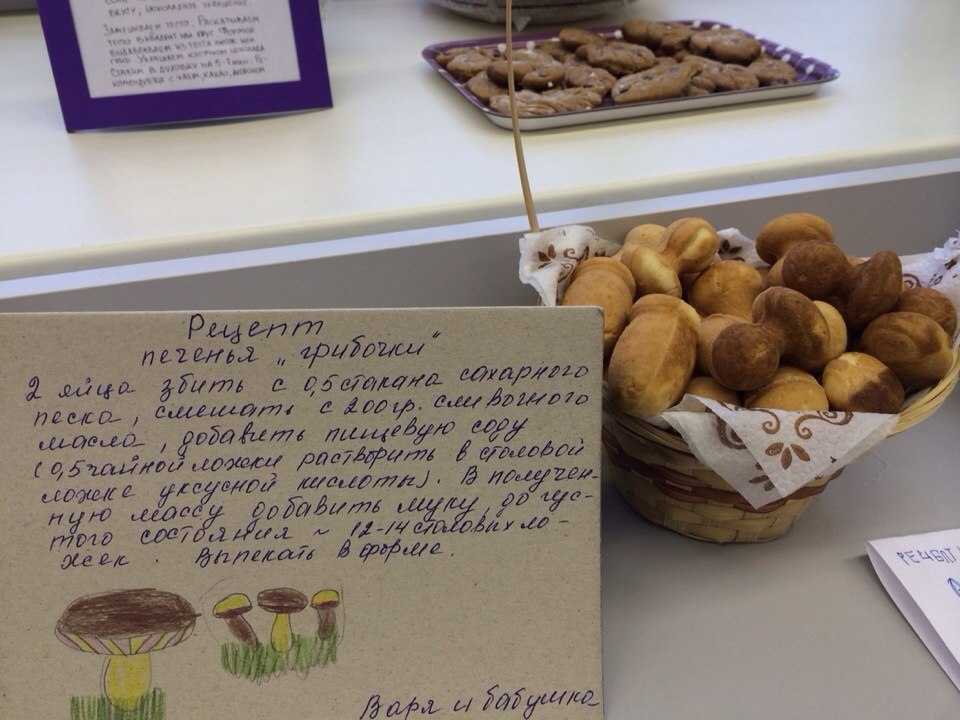 вкиту, шоколадное украшение.
Замешиваем тесто. Раскатываем
тесто в квадрат или круг. Формой
выдавливаем из теста
гриб. Украшаем кусочком шоколада
ставим в духовку на 5-7 мин. Ре-
комендуетса с чаем, какао, молоком.
Рецепт
печенья „грибочки"
2 яйца збить с 0,5 стакана сахарного
песка, смешать с 200гр. сливочного
масла, добавить пищевую соду
(0,5 чайной ложки растворить в столовой
ложке уксусной кислоты). В получен-
ную массу добавить муку, до гус-
того состояния ~ 12-14 столовых ло-
жек. Выпекать в форме.
Варя и бабушка
Рецепт